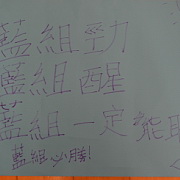 藍組勁
藍組醒
藍組一定能
藍組必勝!